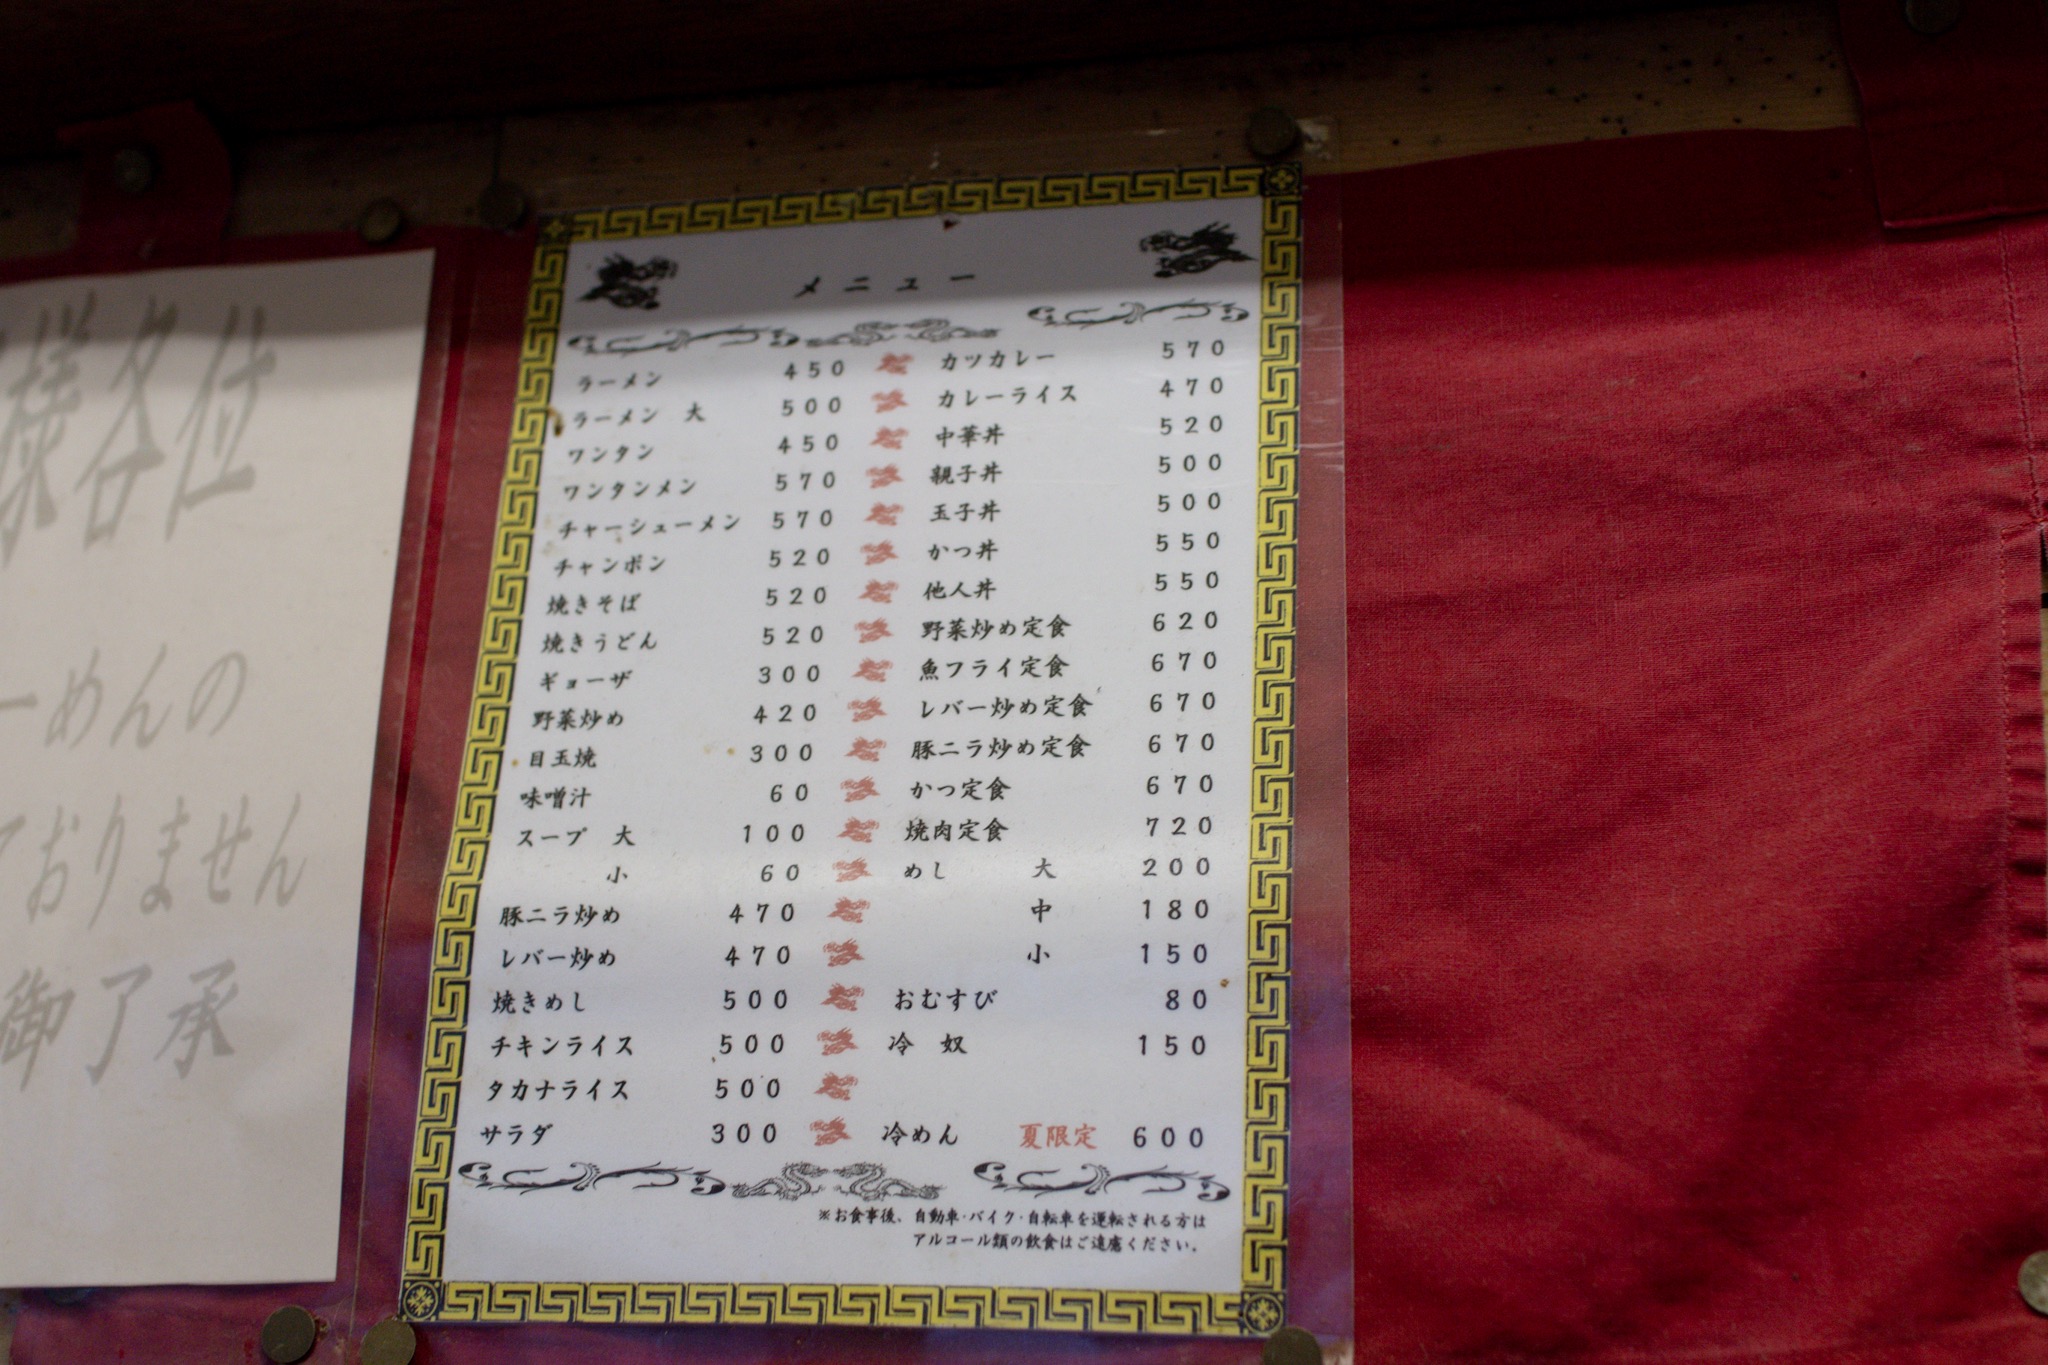 様各位
ーめんの
ておりません
御了承
メニュー
ラーメン 450
ラーメン 大 500
ワンタン 450
ワンタンメン 570
チャーシューメン 570
チャンポン 520
焼きそば 520
焼きうどん 520
ギョーザ 300
野菜炒め 420
目玉焼 300
味噌汁 60
スープ 大 100
小 60
豚ニラ炒め 470
レバー炒め 470
焼きめし 500
チキンライス 500
タカナライス 500
サラダ 300
カツカレー 570
カレーライス 470
中華丼 520
親子丼 500
玉子丼 500
かつ丼 550
他人丼 550
野菜炒め定食 620
魚フライ定食 670
レバー炒め定食 670
豚ニラ炒め定食 670
かつ定食 670
焼肉定食 720
めし 大 200
中 180
小 150
おむすび 80
冷 奴 150
冷めん 夏限定 600
※お食事後、自動車・バイク・自転車を運転される方は
アルコール類の飲食はご遠慮ください。